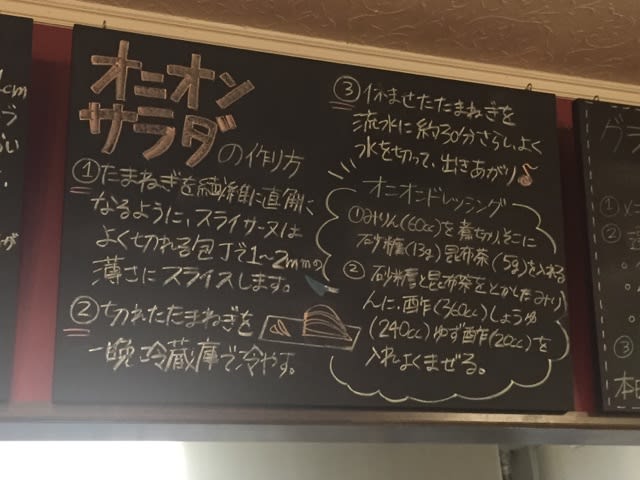 オニオン
サラダ
の作り方
①たまねぎを繊維に直角に
なるように、スライサー又は
よく切れる包丁で1～2mmの
薄さにスライスします。
②切れたたまねぎを
一晩冷蔵庫で冷やす。
③休ませたたまねぎを
流水に約30分さらし、よく
水を切って、出きあがり♪
オニオンドレッシング
①みりん(60cc)を煮切り、そこに
砂糖(13g)昆布茶(5g)を入れる
② 砂糖と昆布茶をとかしたみり
んに、酢(360cc)しょうゆ
(240cc)ゆず酢(20cc)を
入れよくまぜる。
cm
う
が
グラ
①
②
③
本日